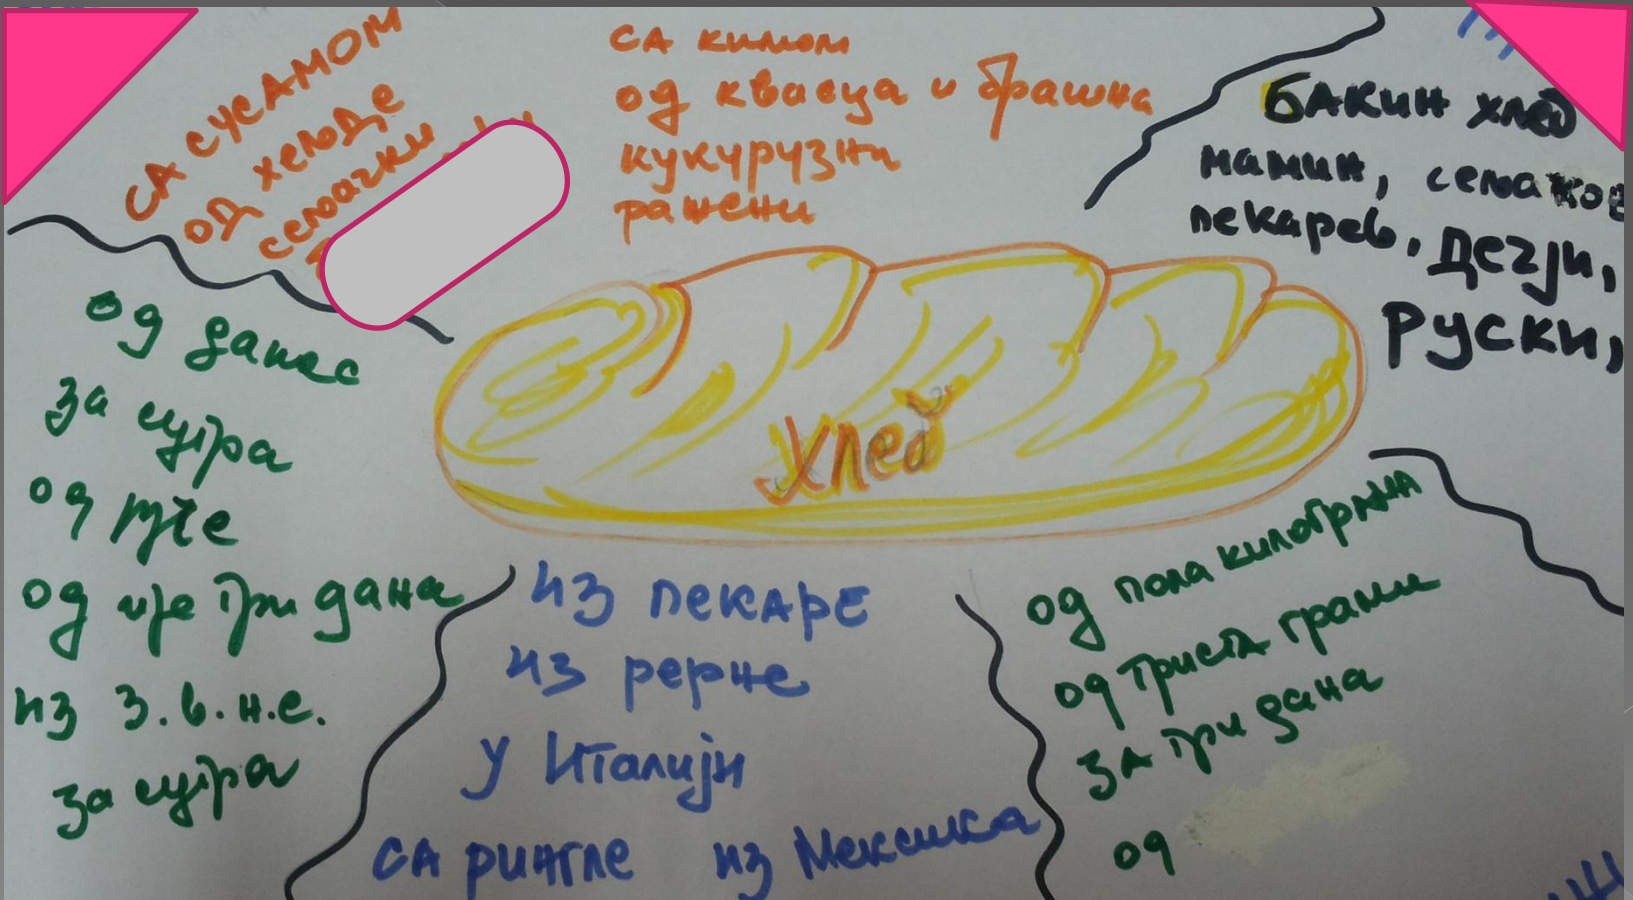 СА СУСАМОМ
ОД ХЕЉДЕ
сељачки
са кимом
од квасца и брашна
кукурузни
ражени
БАКИН ХЛЕБ
мамин, сељаков
пекарев, ДЕЧЈИ,
РУСКИ,
од данас
за сутра
од јуче
од пре три дана
из З.в.н.е.
за сутра
хлеб
ИЗ ПЕКАРЕ
ИЗ рерне
У Италији
СА рингле из Мексика
од пола килограма
од триста грами
ЗА три дана
од